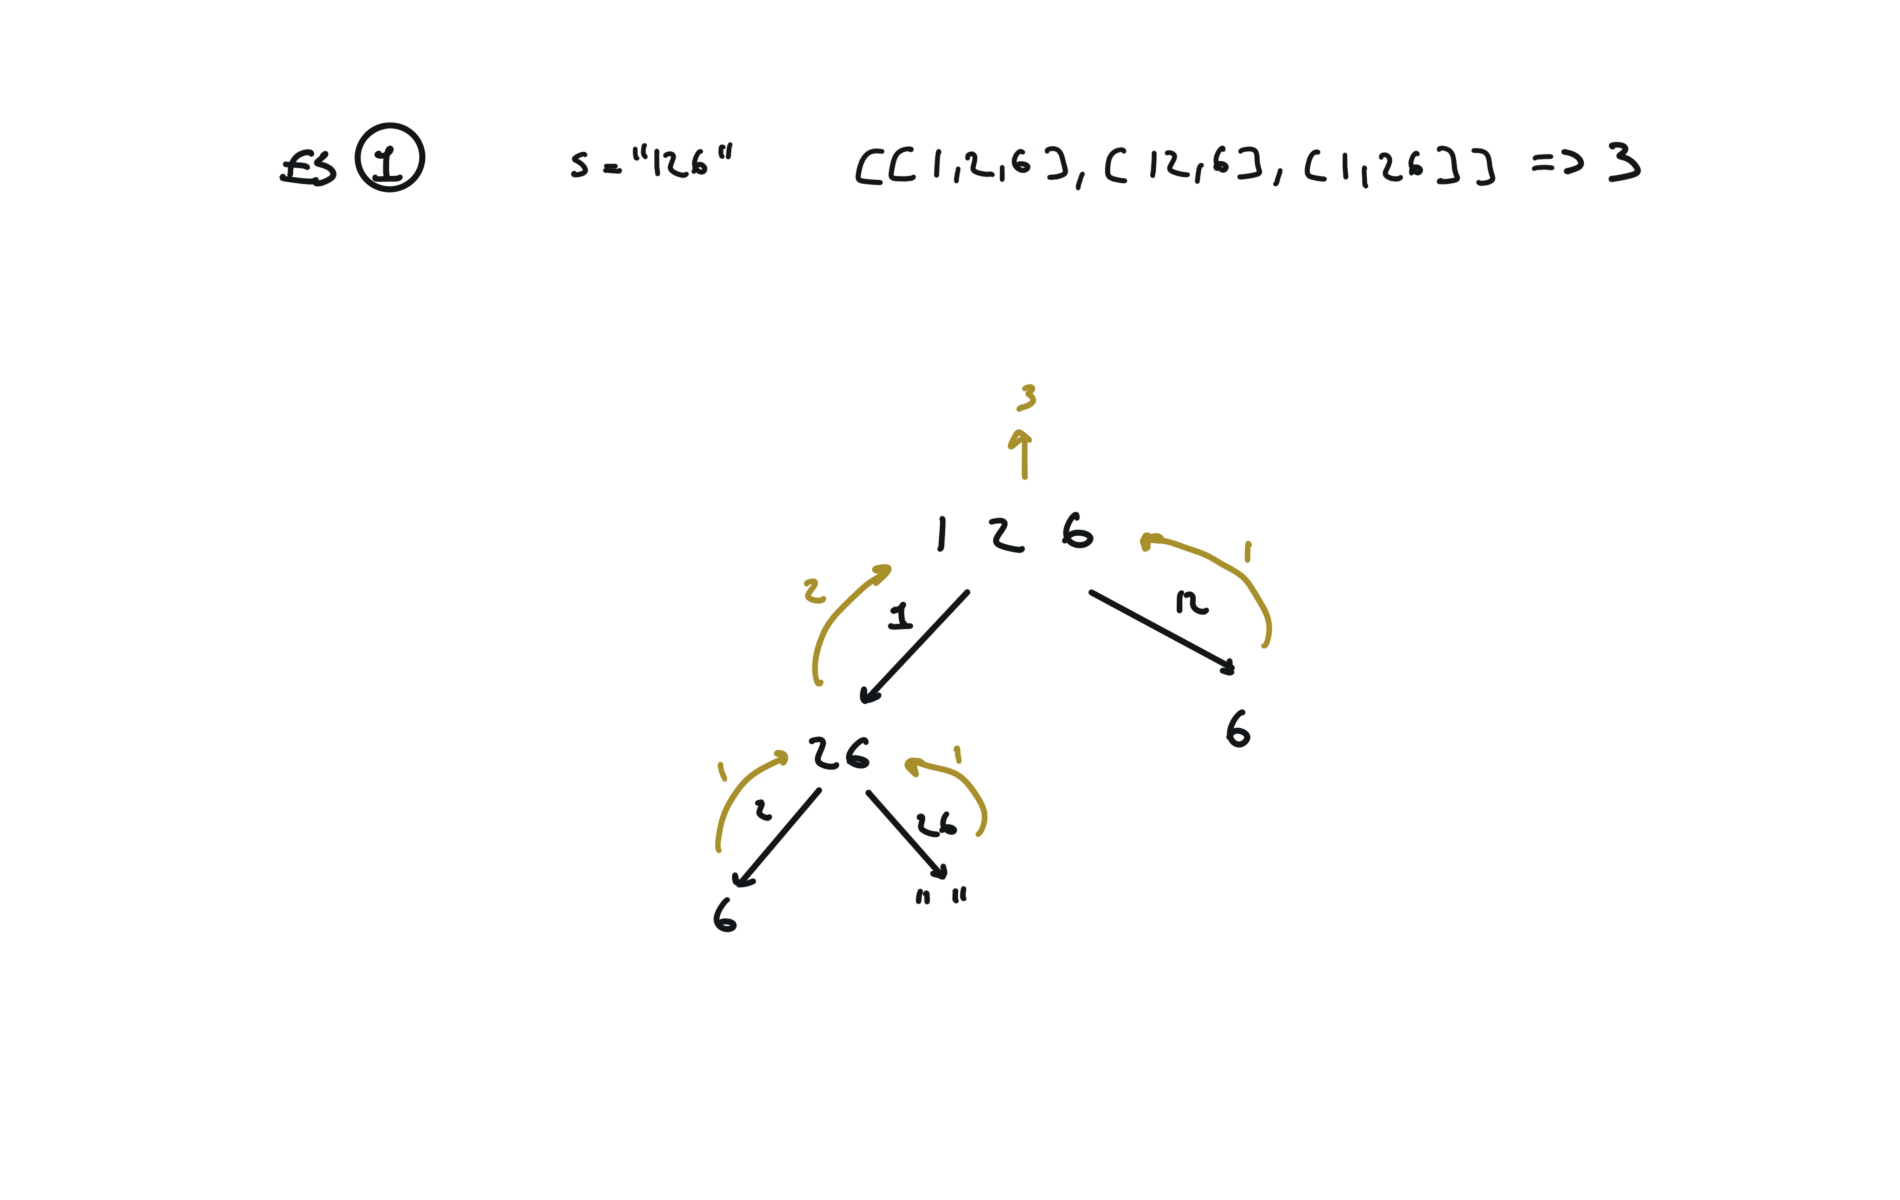 ES 1 s="126" [[1,2,6],[12,6],[1,26]] => 3
3
1 2 6
2 1 12 1
26 6
1 2 26 1
6 " "